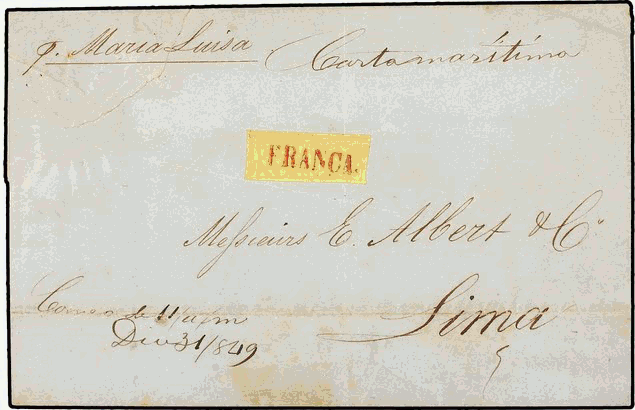 p. Maria Luisa Carta maritima
FRANCA.
Messieurs E. Albert & Cº
Lima
Correo de 11/u/m
Dic 31/849